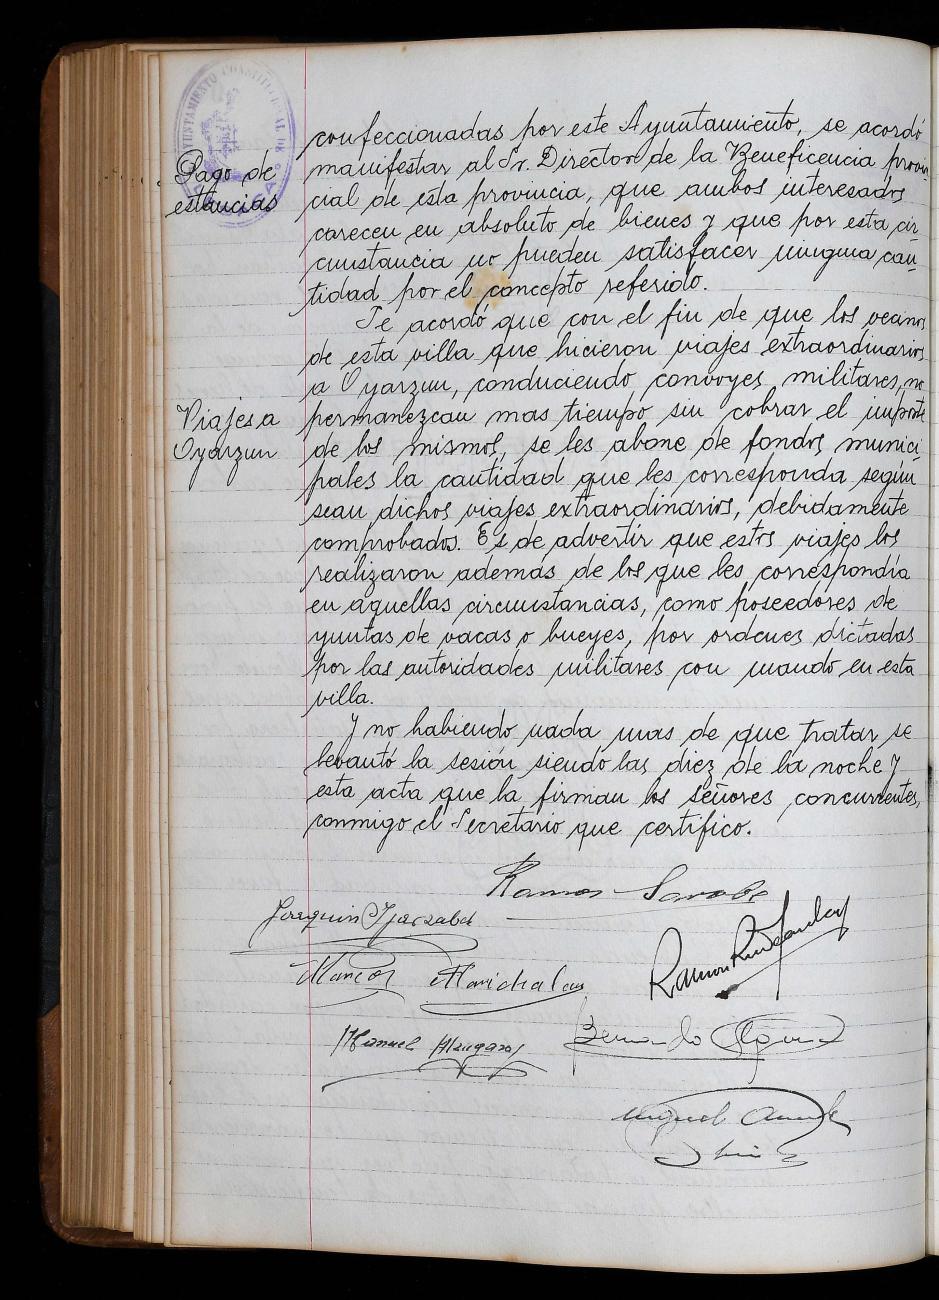 AYUNTAMIENTO CONSTITUCIONAL DE
Pago de
estancias
confeccionadas por este Ayuntamiento, se acordó
manifestar al Sr. Director de la Beneficencia provin
cial de esta provincia, que ambos interesados
carecen en absoluto de bienes y que por esta cir
cunstancia no pueden satisfacer ninguna can
tidad por el concepto referido.
Se acordó que con el fin de que los vecinos
de esta villa que hicieron viajes extraordinarios
a Oyarzun, conduciendo convoyes militares, no
Viajes a
Oyarzun
permanezcan mas tiempo sin cobrar el importe
de los mismos, se les abone de fondos munici
pales la cantidad que les corresponda según
sean dichos viajes extraordinarios, debidamente
comprobados. Es de advertir que estos viajes los
realizaron además de los que les correspondía
en aquellas circunstancias, como poseedores de
yuntas de vacas o bueyes, por ordenes dictadas
por las autoridades militares con mando en esta
villa.
Y no habiendo nada mas de que tratar se
levantó la sesión siendo las diez de la noche y
esta acta que la firman los señores concurrentes,
conmigo el Secretario que certifico.
Ramon Sarobe
Joaquin Oyarzabal
Ramon
Marcos Marichalar
Manuel
Bernardo
Miguel